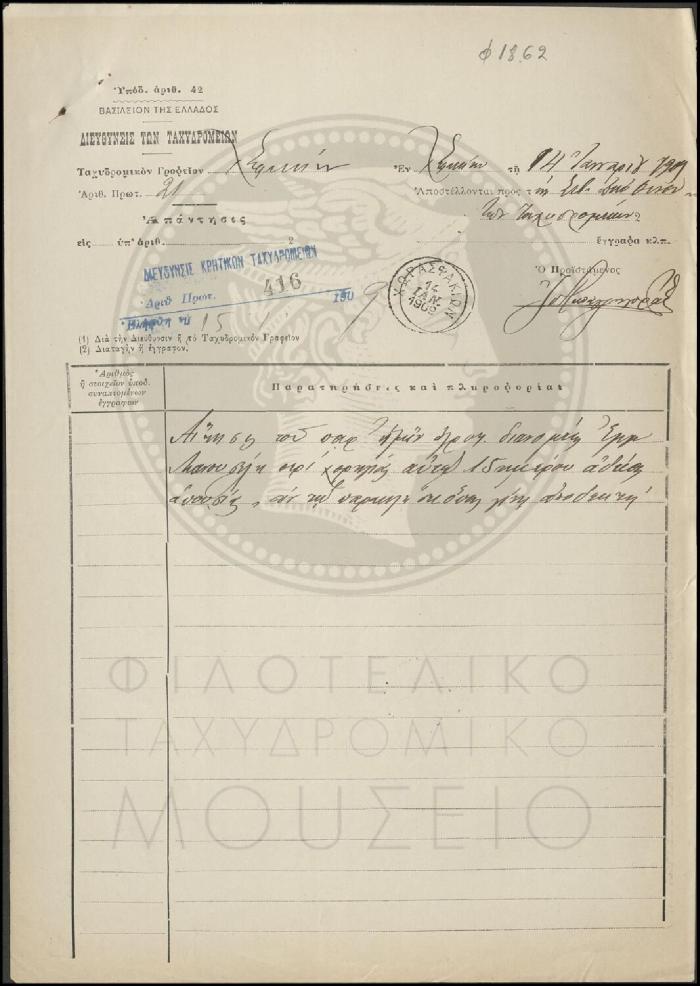 φ 18,62
Ὑπόδ. ἀριθ. 42
ΒΑΣΙΛΕΙΟΝ ΤΗΣ ΕΛΛΑΔΟΣ
ΔΙΕΥΘΥΝΣΙΣ ΤΩΝ ΤΑΧΥΔΡΟΜΕΙΩΝ
Ταχυδρομικὸν Γραφεῖον Σφακίων
Ἀριθ. Πρωτ. 21
Ἀπάντησις
εἰς ὑπ' ἀριθ. 2
Ἐν Σφακίοις τῇ 14 Ἰανουαρίου 1909
Ἀποστέλλονται πρὸς τὴν Σεβ. Διεύθυνσιν
τῶν Ταχυδρομείων
ἔγγραφα κλπ.
Ὁ Προϊστάμενος
ΔΙΕΥΘΥΝΣΙΣ ΚΡΗΤΙΚΩΝ ΤΑΧΥΔΡΟΜΕΙΩΝ
Ἀριθ Πρωτ. 416
Ἐλήφθη τῇ 15 1 190 9
ΧΩΡΑ ΣΦΑΚΙΩΝ
14
ΙΑΝ.
(1) Διὰ τὴν Διεύθυνσιν ἢ τὸ Ταχυδρομικὸν Γραφεῖον
(2) Διαταγὴν ἢ ἔγγραφον.
Ἀριθμὸς
ἢ στοιχεῖον ὑποδ.
συναπτομένων
ἐγγράφων
Παρατηρήσεις καὶ πληροφορίαι
Αἴτησις τοῦ παρ' ἡμῖν ἀγροτ. διανομέως Ἐμμ
περὶ χορηγήσεως αὐτῷ 15ημέρου ἀδείας
ἀπουσίας,
ΦΙΛΟΤΕΛΙΚΟ
ΤΑΧΥΔΡΟΜΙΚΟ
ΜΟΥΣΕΙΟ